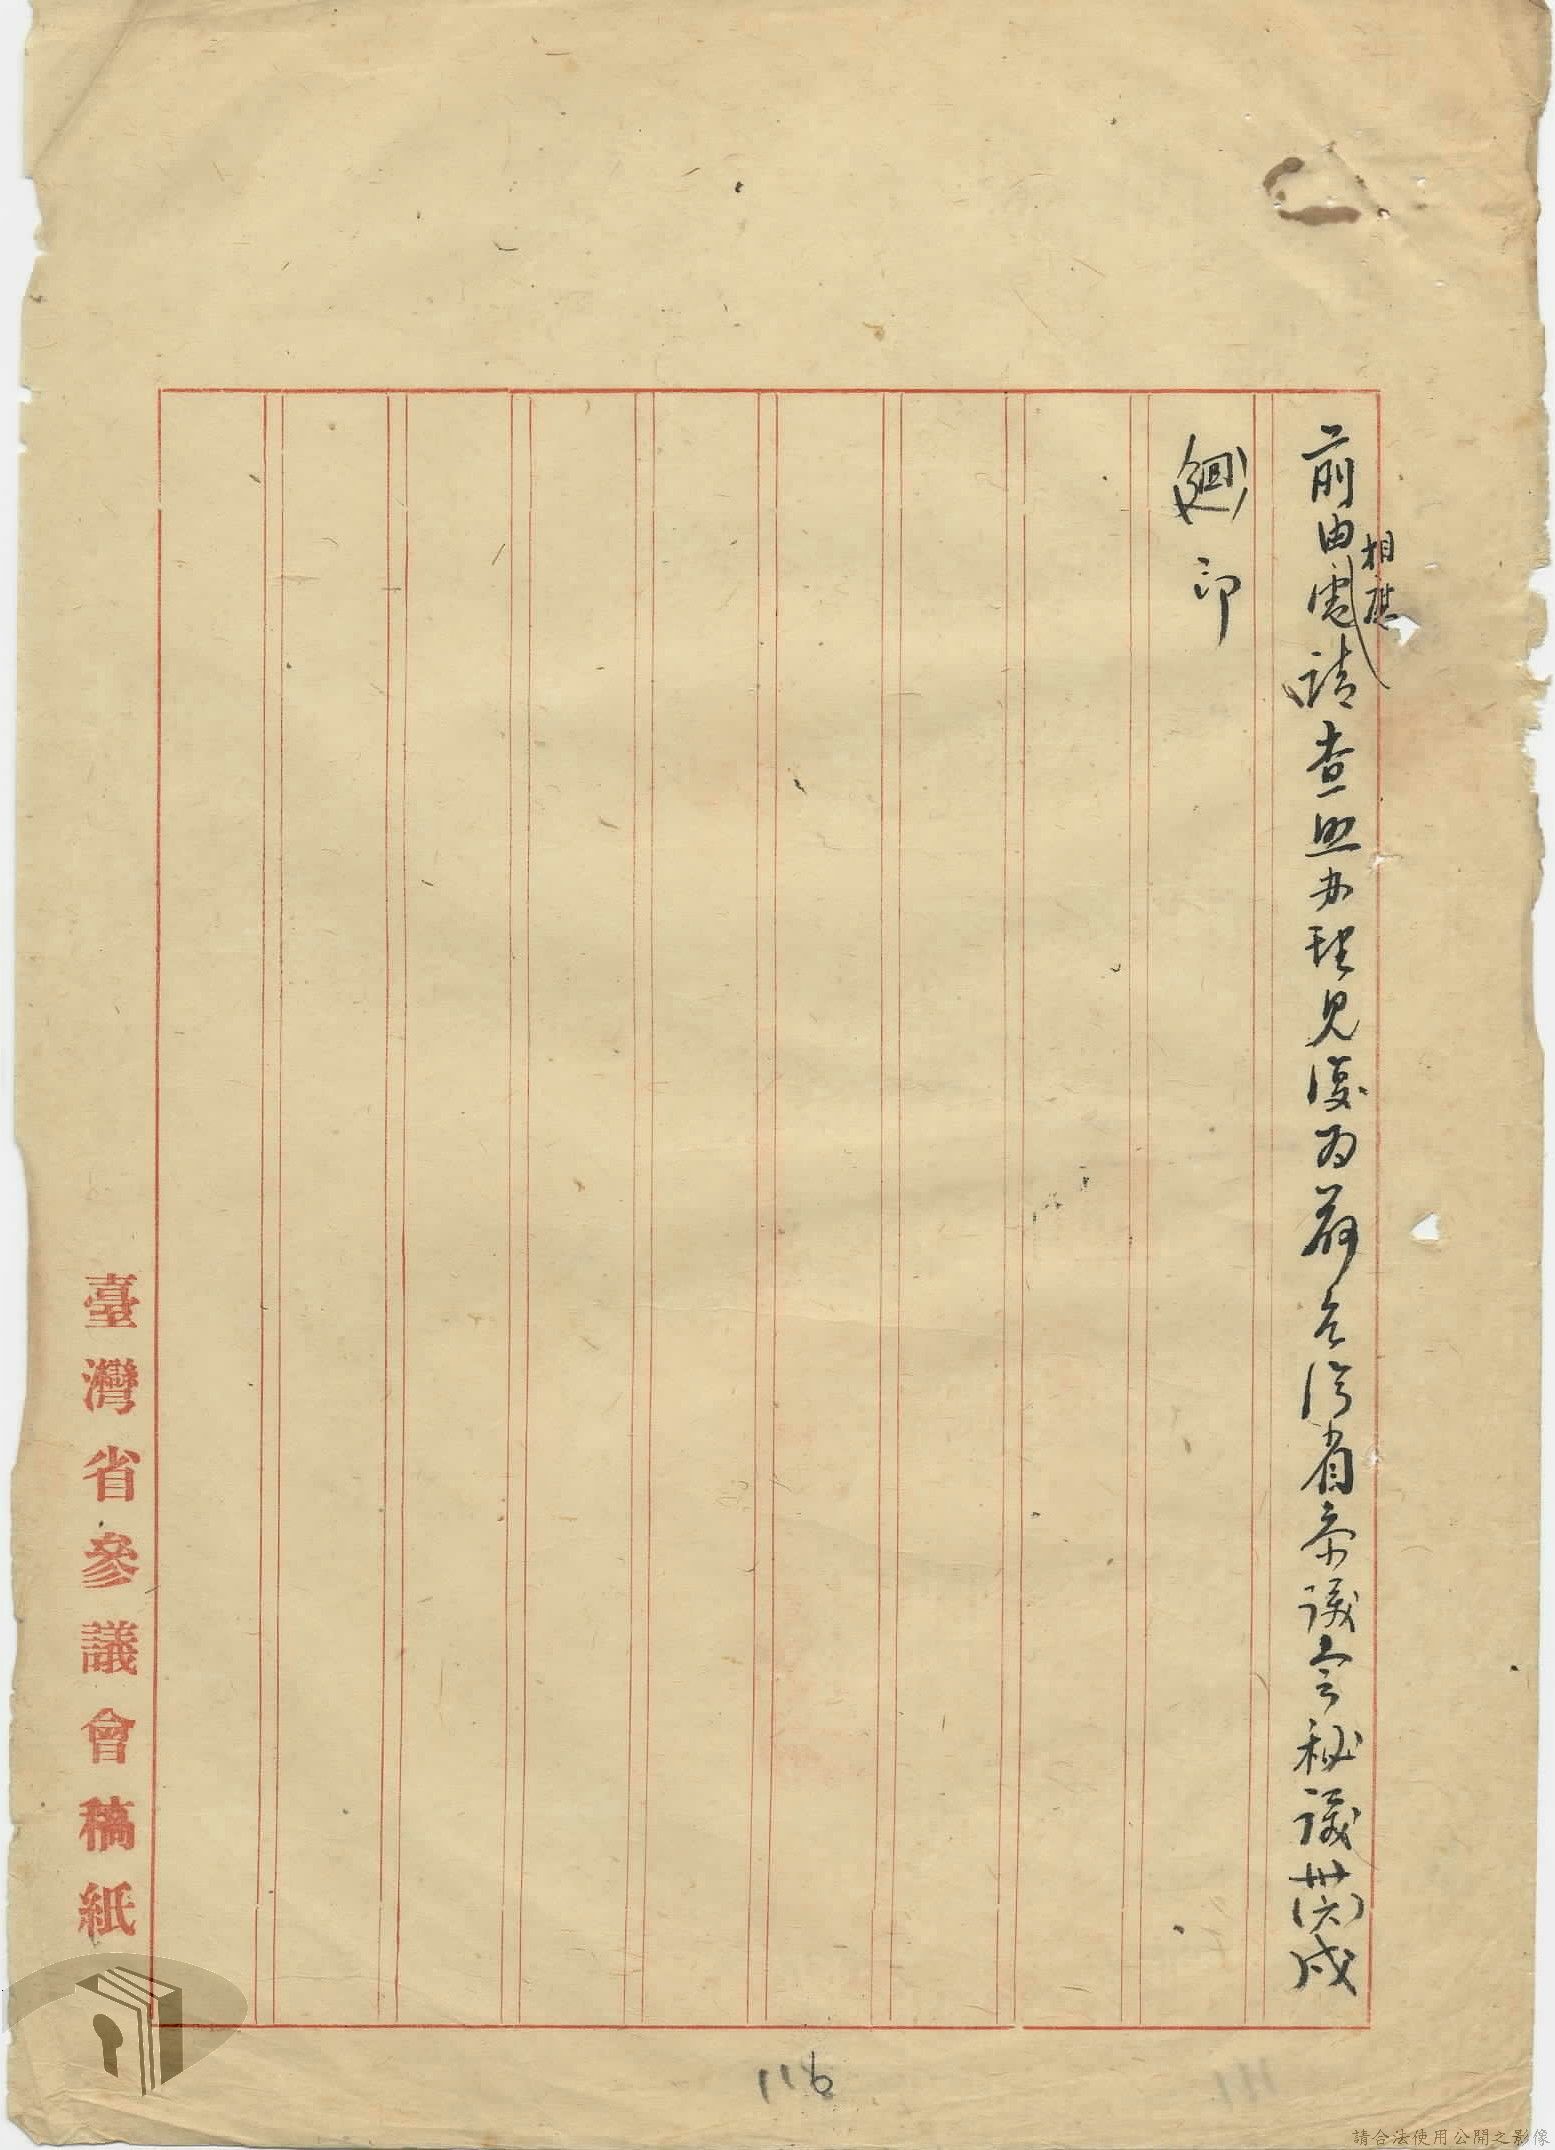 前由相應電請查照办理見復为荷台湾省参議会秘議卅(六)戌
(迴)印
臺灣省參議會稿紙
116
請合法使用公開之影像